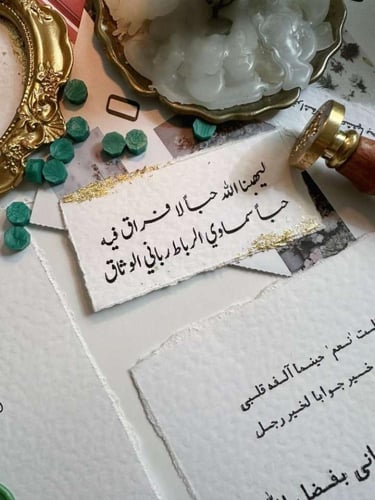 ليجبنا الله حباً لا فراق فيه
حباً سماوي الرباط رباني الوثاق
"نعم" حينما آلفه قلبي
خير جوابا لخير رجل